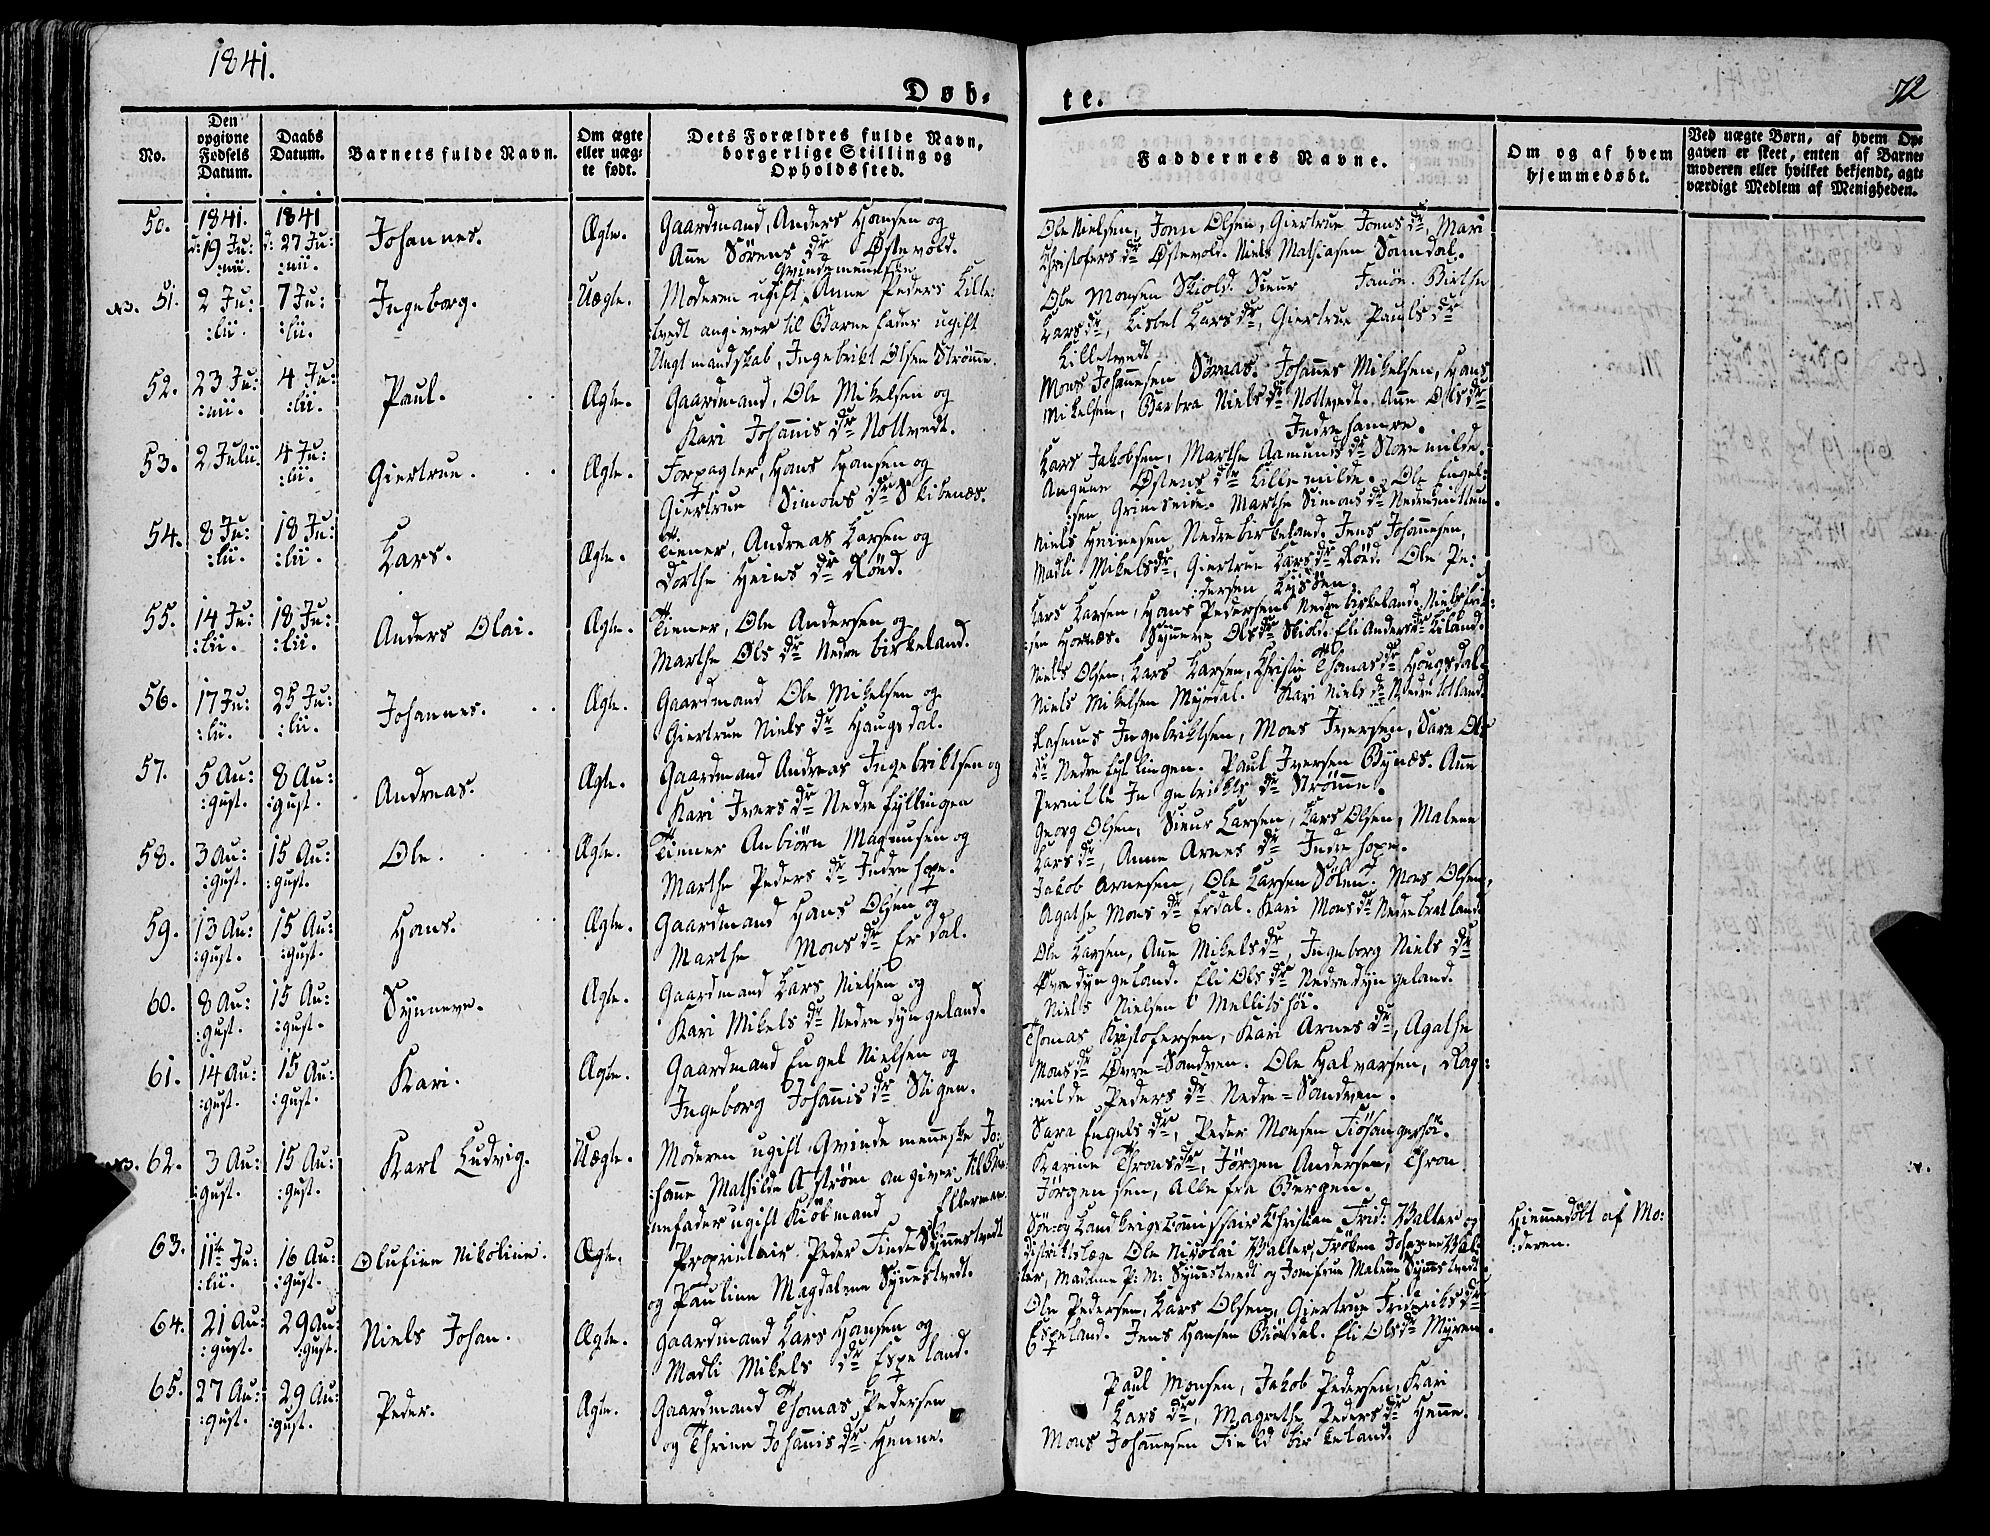 1841.
72
Døb-
te.
No.
Den opgivne Fødsels Datum.
Daabs Datum.
Barnets fulde Navn.
Om ægte eller uægte født.
Dets Forældres fulde Navn, borgerlige Stilling og Opholdssted.
Faddernes Navne.
Om og af hvem hjemmedøbt.
Ved uægte Børn, af hvem Opgaven er skeet, enten af Barnemoderen eller hvilket bekjendt, agtværdigt Medlem af Menigheden.
50. 1841. d: 19 Ju: :nii. 1841 d: 27 Ju: :nii. Johannes. Ægte. Gaardmand, Anders Hansen og
Ane Sørens dr Østevold.
Ole Nielsen, Jonn Olsen, Giertrue Jons dr, Mari
Christofers dr Østevold. Niels Mathiasen Samdal.
NB. 51. 2 Ju: :lii. 7 Ju: :lii. Ingeborg. Uægte. Moderen ugift Qvindemenneske Anne Peders Lille:
:tvedt angiver til Barnefader ugift
Ungt mandskab, Ingebrikt Olsen Strømme.
Ole Monsen Skiold. Sieur Fanøe. Birthe
Lars dr, Lisbet Lars dr, Giertrue Pauls dr
Lilletvedt
52. 23 Ju: :nii. 4 Ju: :lii. Paul. Ægte. Gaardmand, Ole Mikelsen og
Kari Johannis dr Nottvedt.
Mons Johannesen Sørnas. Johannes Mikelsen, Hans
Mikelsen, Barbra Niels dr Nottvedt. Ane Ols dr
Indre hamre.
53. 2 Julii. 4 Ju: :lii. Giertrue. Ægte. Forpagter, Hans Hansen og
Giertrue Simons dr Skibenæs.
Lars Jakobsen, Marthe Aamunds dr Store milde.
Østens dr Lille milde. Ole Engel:
:sen Grimseide. Marthe Simons dr
54. 8 Ju: :lii. 18 Ju: :lii. Lars. Ægte. Tiener, Andreas Larsen og
Dorthe Heins dr Rønd.
Niels Heinesen, Nedrebirkeland. Jens Johannesen,
Madli Mikels dr, Giertrue Lars dr Rønd. Ole Pe:
:dersen
55. 14 Ju: :lii. 18 Ju: :lii. Anders Olai. Ægte. Tiener, Ole Andersen og
Marthe Ols dr Nedre birkeland.
Lars Larsen, Hans Pedersen Nedre birkeland. Niels
:sen Hornæs. Synneve Ols dr Skiold. Eli Anders dr
56. 17 Ju: :lii. 25 Ju: :lii. Johannes. Ægte. Gaardmand Ole Mikelsen og
Giertrue Niels dr Haugsdal.
Niels Olsen, Lars Larsen, Christie Thomas dr Hougsdal.
Niels Mikelsen Myrdal. Kari Niels dr
57. 5 Au: :gust. 8 Au: :gust. Andreas. Ægte. Gaardmand Andreas Ingebriktsen og
Kari Ivers dr Nedre fyllingen
Rasmus Ingebriktsen, Mons Iversen, Sara Ols
dr Nedre fyllingen. Paul Iversen Bynæs. Ane
Pernille Ingebrikts dr Strømme.
58. 3 Au: :gust. 15 Au: :gust. Ole. Ægte. Tiener Anbiørn Magnusen og
Marthe Peders dr Indre hope.
Georg Olsen, Sieur Larsen, Lars Olsen, Malene
Lars dr, Anne Arnes dr Indre hope.
59. 13 Au: :gust. 15 Au: :gust. Hans. Ægte. Gaardmand Hans Olsen og
Marthe Mons dr Erdal.
Jakob Arnesen, Ole Larsen Søten. Mons Olsen,
Agathe Mons dr Erdal. Kari Mons dr Nedrebratland.
60. 8 Au: :gust. 15 Au: :gust. Synneve. Ægte. Gaardmand Lars Nielsen og
Kari Mikels dr Nedre dyngeland.
Ole Larsen, Ane Mikels dr, Ingeborg Niels dr
Øvre dyngeland. Eli Ols dr Nedre dyngeland.
Niels Nielsen Mellitshøi.
61. 14 Au: :gust. 15 Au: :gust. Kari. Ægte. Gaardmand Engel Nielsen og
Ingeborg Johannis dr Stigen.
Thomas Kristofersen, Kari Arnes dr, Agathe
Mons dr Øvre=Sandven. Ole Halvarsen, Rag:
:nilde Peders dr Nedre=Sandven.
NB. 62. 3 Au: :gust. 15 Au: :gust. Karl Ludvig. Uægte. Moderen ugift Qvindemenneske Jo:
:hanne Mathilde Astrøm angiver til Bar:
:nefader ugift Kiøbmand Ellerman.
Sara Engels dr, Peder Monsen Tiøsangerhøi.
Karine Throns dr, Jørgen Andersen, Thron
Jørgensen, alle fra Bergen.
63. 11te Ju: :lii. 16 Au: :gust. Olufine Nikoline. Ægte. Proprietair Peder Finde Synnestvedt
og Pauline Magdalene Synnestvedt.
Søe- og Landkrigscommissair Christian Frid: Walter og
Distriktslæge Ole Nicolai Walter, Frøken Johanne Wal:
ter, Madame P: M: Synnestvedt og Jomfrue Malene Synnestvedt.
Hiemmedøbt af Mo:
:deren.
64. 21 Au: :gust. 29 Au: :gust. Niels Johan. Ægte. Gaardmand Lars Hansen og
Madli Mikels dr Espeland.
Ole Pedersen, Lars Olsen, Giertrue Frideriks dr
Espeland. Jens Hansen Biørdal. Eli Ols dr Myren.
65. 27 Au: :gust. 29 Au: :gust. Peder. Ægte. Gaardmand Thomas Pedersen
og Thrine Johannis dr Henne.
Paul Monsen, Jakob Pedersen, Kari
Lars dr, Magrethe Peders dr Henne.
Mons Johannesen Fieldbirkeland.